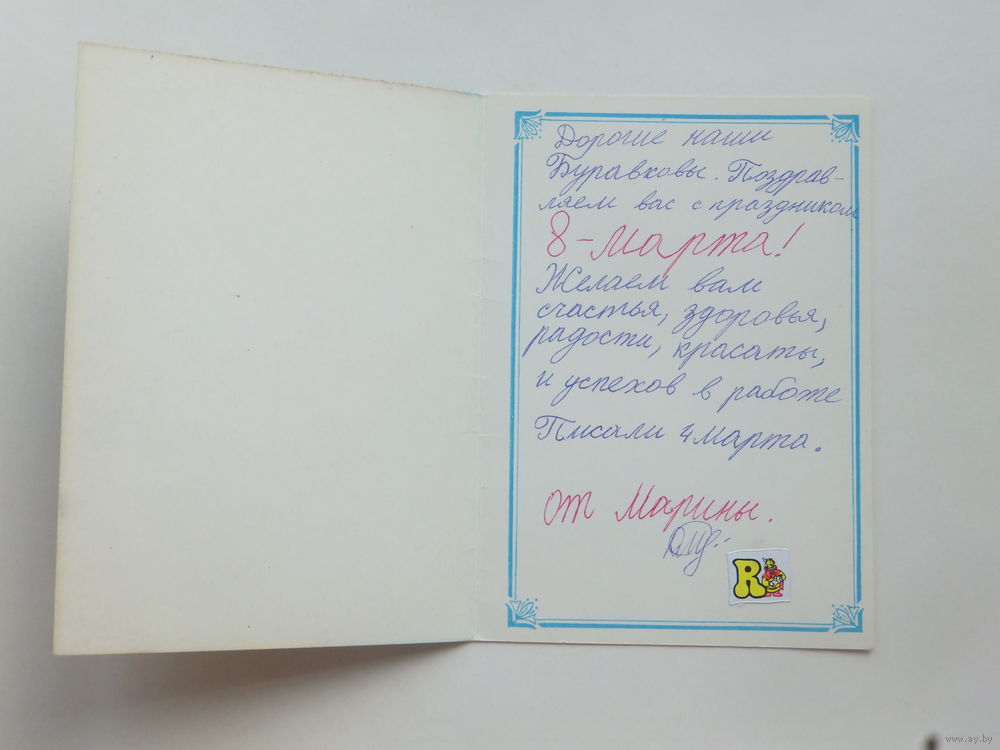 Дорогие наши
Буравковы. Поздрав-
ляем вас с праздником
8-Марта!
Желаем вам
счастья, здоровья,
радости, красаты,
и успехов в работе
Писали 4 марта.
от Марины.
R
www.ay.by